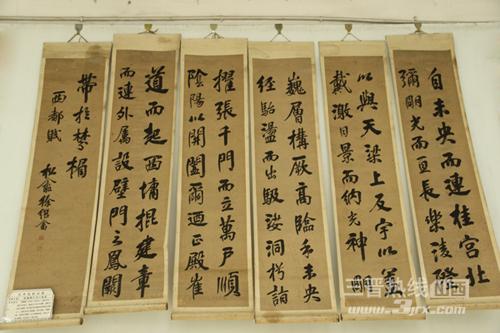 自未央而連桂宮北
彌明光而亘長樂陵隥
以與天梁上反宇以蓋
戴激日景而納光神明
巍層構厥高臨乎未央
經駘盪而出馺娑洞枍詣
擢張千門而立萬戶順
陰陽以開闔爾迺正殿崔
道而起西墉掍建章
而連外属設璧門之鳳闕
帶於棼楣
西都賦
松 徐
三晋热线 山西
www.3jrx.com